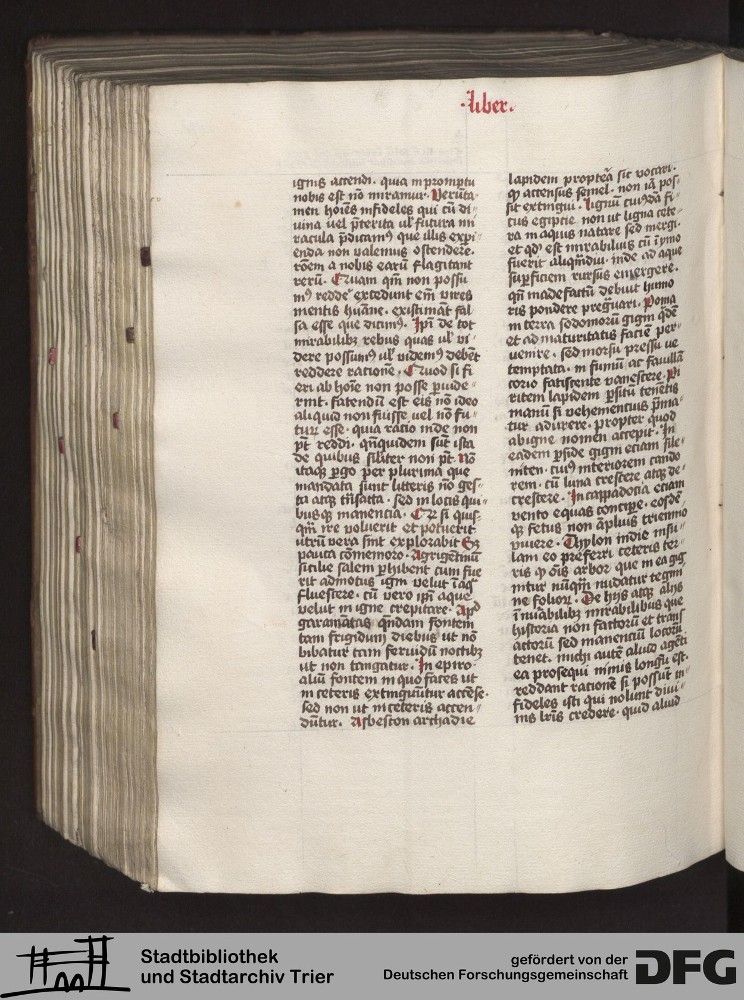 ·liber·
ignis accendi. quia in promptu
nobis est nō miramur. Veruta⸗
men hoīes infideles qui cū di⸗
uina uel p̄terita ul̓ futura mi
racula p̄dicamꝰ que illis expi⸗
enda non ualemus ostendere.
rōem a nobis earū flagitant
rerū. Quam qm̄ non possu
mꝰ redde᷑ excedunt em̄ uires
mentis hūane. existimāt fal
sa esse que dicimꝰ. Ip̄i de tot
mirabilibꝫ rebus quas ul̓ vi⸗
dere possumꝰ ul̓ videmꝰ debēt
reddere rationē. Quod si fi
eri ab hoīe non posse p̄uide⸗
rint. fatendū est eis nō ideo
aliquid non fuisse uel nō fu⸗
turū esse. quia racio inde non
pt̄ reddi. qn̄quidem sūt ista
de quibus siliter non pt̄. Nō
itaqꝫ p̱go per plurima que
mandata sunt litteris nō ges⸗
ta atqꝫ trāsacta. sed in locis qui⸗
busqꝫ manencia. Qr̄ si quis⸗
qm̄ ire voluerit et potuerit
utrū vera sint explorabit Sꝫ
pauca cōmemoro. Agrigentinū
sicilie salem p̱hibent cum fue
rit admotus igni velut ī aq̄
fluescere. cū vero ip̄i aque
velut in igne crepitare. Apd̓
garamantas qn̄dam fontem
tam frigidum diebus ut nō
bibatur tam feruidū noctibꝫ
ut non tangatur. In epiro
aliū fontem in quo faces ut
in ceteris extinguūtur accēse.
sed non ut in ceteris accen⸗
dūtur. Asbeston archadie
lapidem proptea̓ sic vocari.
qꝫ accensus semel. non iā pos⸗
sit extingui. lignū cuiꝰdā fi⸗
cus egiptie non ut ligna cete⸗
ra in aquis natare sed mergi.
et qd̓ est mirabilius cū ī ymo
fuerit aliqmdiu. inde ad aque
sup̱ficiem rursus emergere.
qn̄ madefactū debuit humo
ris pondere pregrauari. Poma
in terra sodomorū gigni qdē
et ad maturitatis faciē per⸗
uenire. sed morsu pressu ue
temptata. in fumū ac fauillā
corio fatiscente vanescere. Pi
ritem lapidem p̱situ tenētis
manū si vehemencius p̄ma⸗
tur adurere. propter quod
ab igne nomen accepit. In
eadem p̱side gigni eciam sile⸗
niten. cuiꝰ interiorem cando
rem. cū luna crescere atqꝫ de⸗
crescere. In cappadocia eciam
vento equas concipe. eosdē⸗
qꝫ fetus non āplius triennio
viuere. Thylon indie insu⸗
lam eo preferri ceteris ter⸗
ris qꝫ ois̄ arbor que in ea gig
nitur nūqm̄ nudatur tegmi
ne folior̄. De hijs atqꝫ alijs
īnūabilibꝫ mirabilibus que
historia non factorū et trans
actorū sed manenciū locorū
tenet. michi autē aliud agēti
ea prosequi nimis longū est.
reddant rationē si possūt in⸗
fideles isti qui nolunt diui⸗
nis lrīs credere. quid aliud
Stadtbibliothek
und Stadtarchiv Trier
gefördert von der
Deutschen Forschungsgemeinschaft
DFG